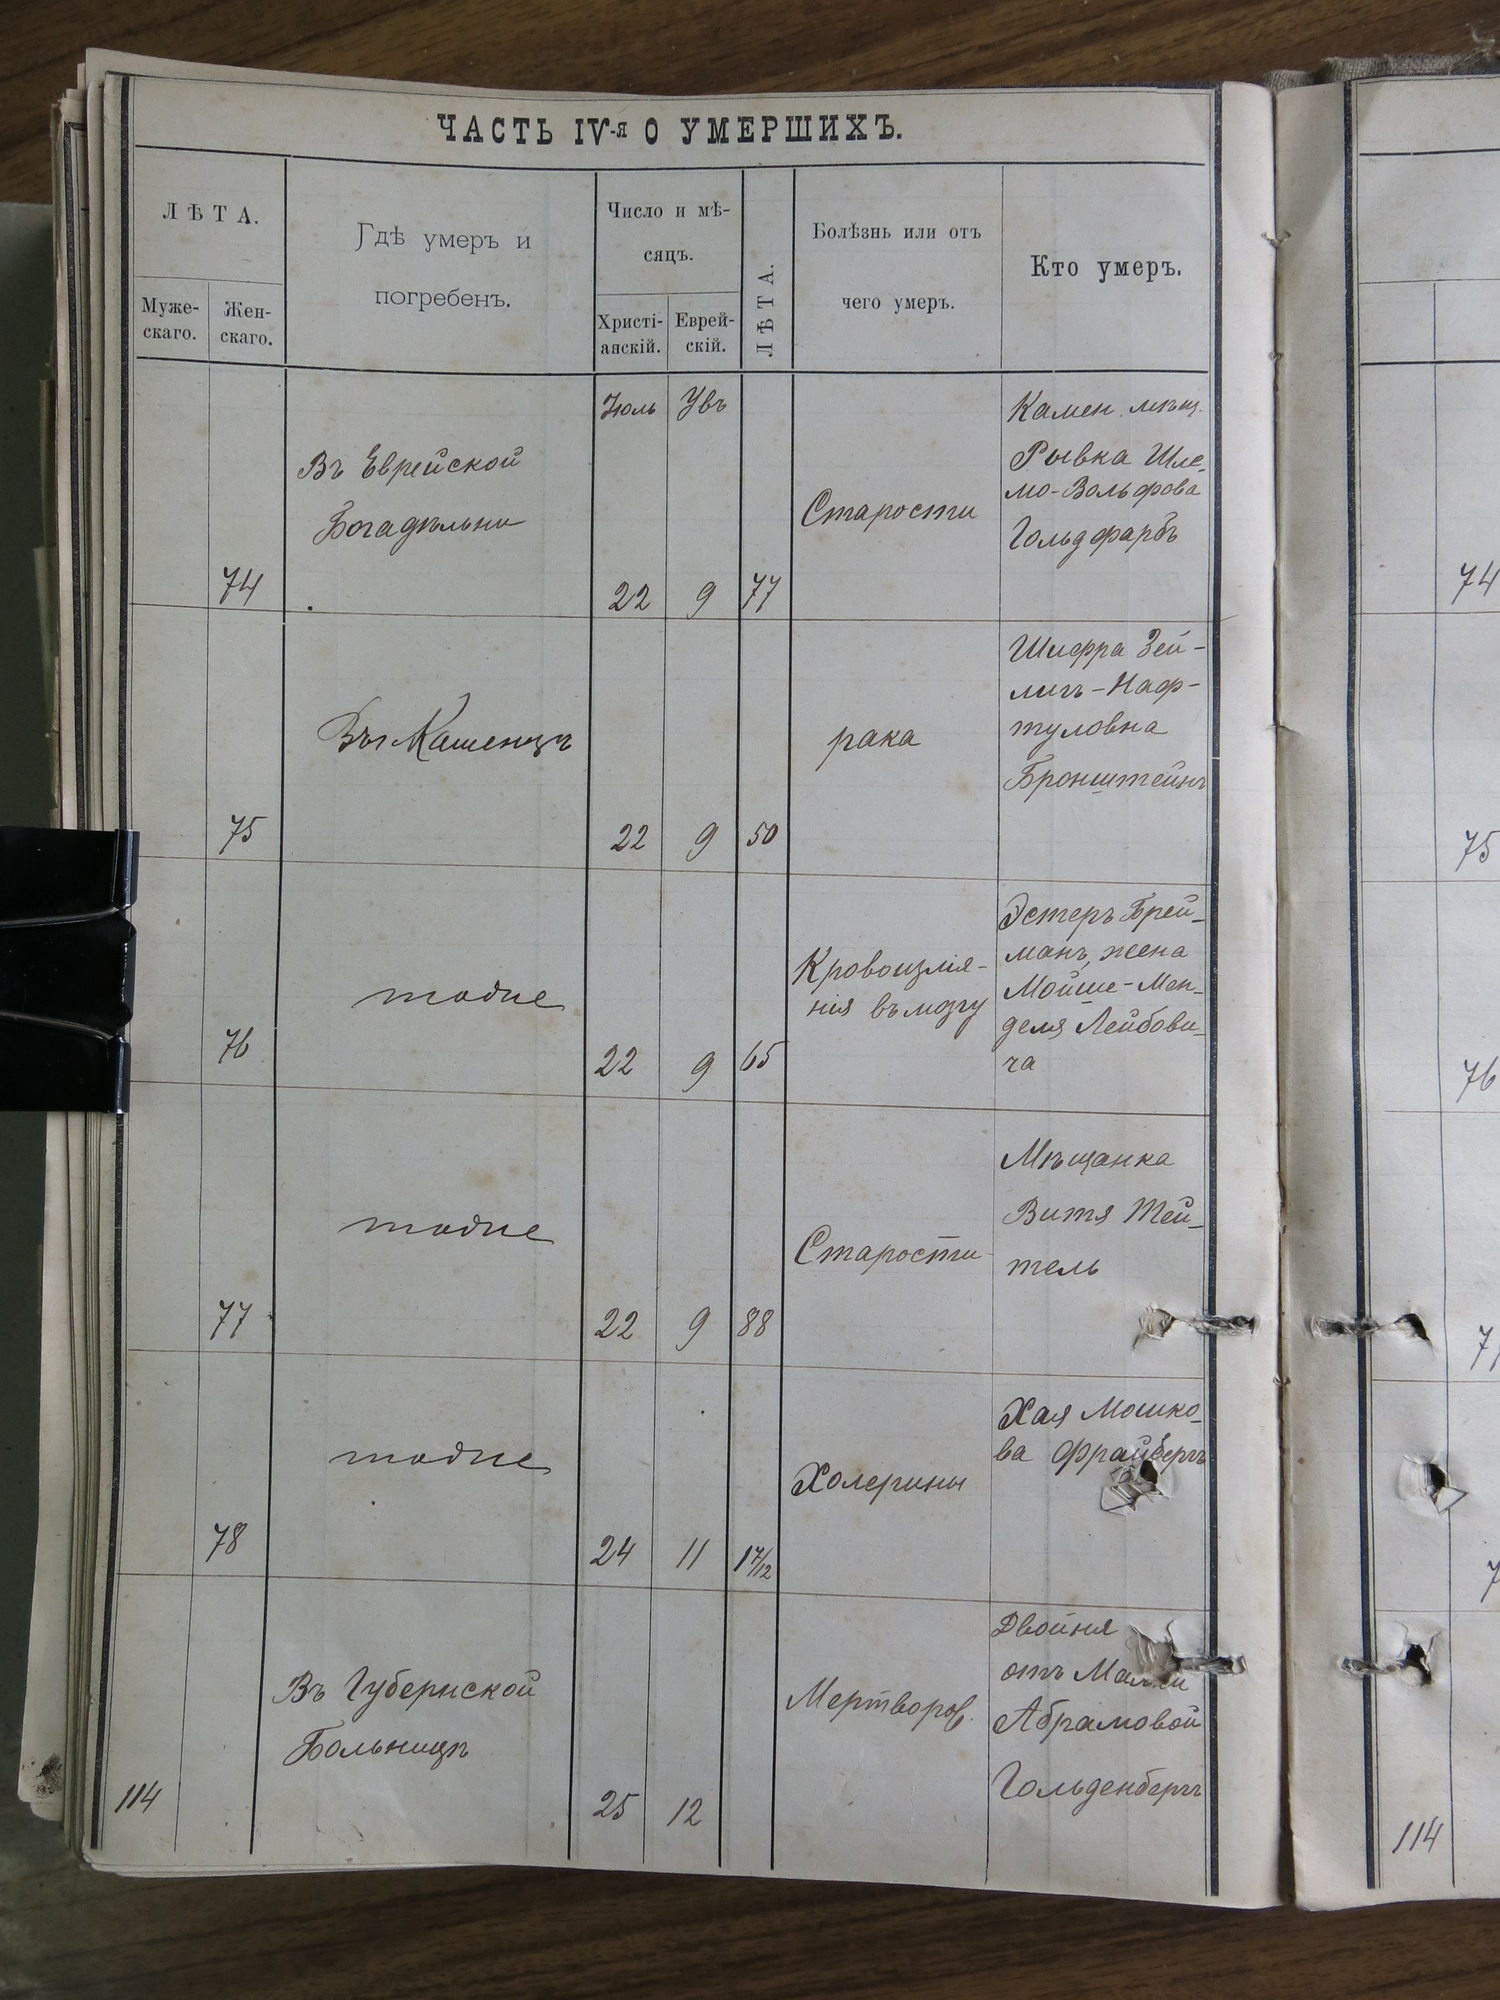 ЧАСТЬ IV-я О УМЕРШИХЪ.
ЛѢТА.
Муже-
скаго.
Жен-
скаго.
Гдѣ умеръ и
погребенъ.
Число и мѣ-
сяцъ.
Христі-
анскій.
Еврей-
скій.
ЛѢТА.
Болѣзнь или отъ
чего умеръ.
Кто умеръ.
Іюль
Увъ
74
Въ Еврейской
Богадѣльни
22
9
77
Старости
Камен. мѣщ.
Рывка Шле-
мо-Вольфова
Гольдфарбъ
74
75
22
9
50
рака
Шифра Зей-
лигъ-Наф-
туловна
Бронштейнъ
75
76
тодие
22
9
65
Кровоизлія-
нія въ мозгу
Эстеръ Брей-
манъ, жена
Мойше-Мен-
деля Лейбови-
ча
76
77
тодие
22
9
88
Старости
Мѣщанка
Витя Тей-
тель
78
тодие
24
11
1 7/12
Холерины
Хая Мошко-
ва Фрайбергъ
114
Въ Губернской
Больницѣ
25
12
Мертворов.
Двойня
отъ Малки
Абрамовой
Гольденбергъ
114